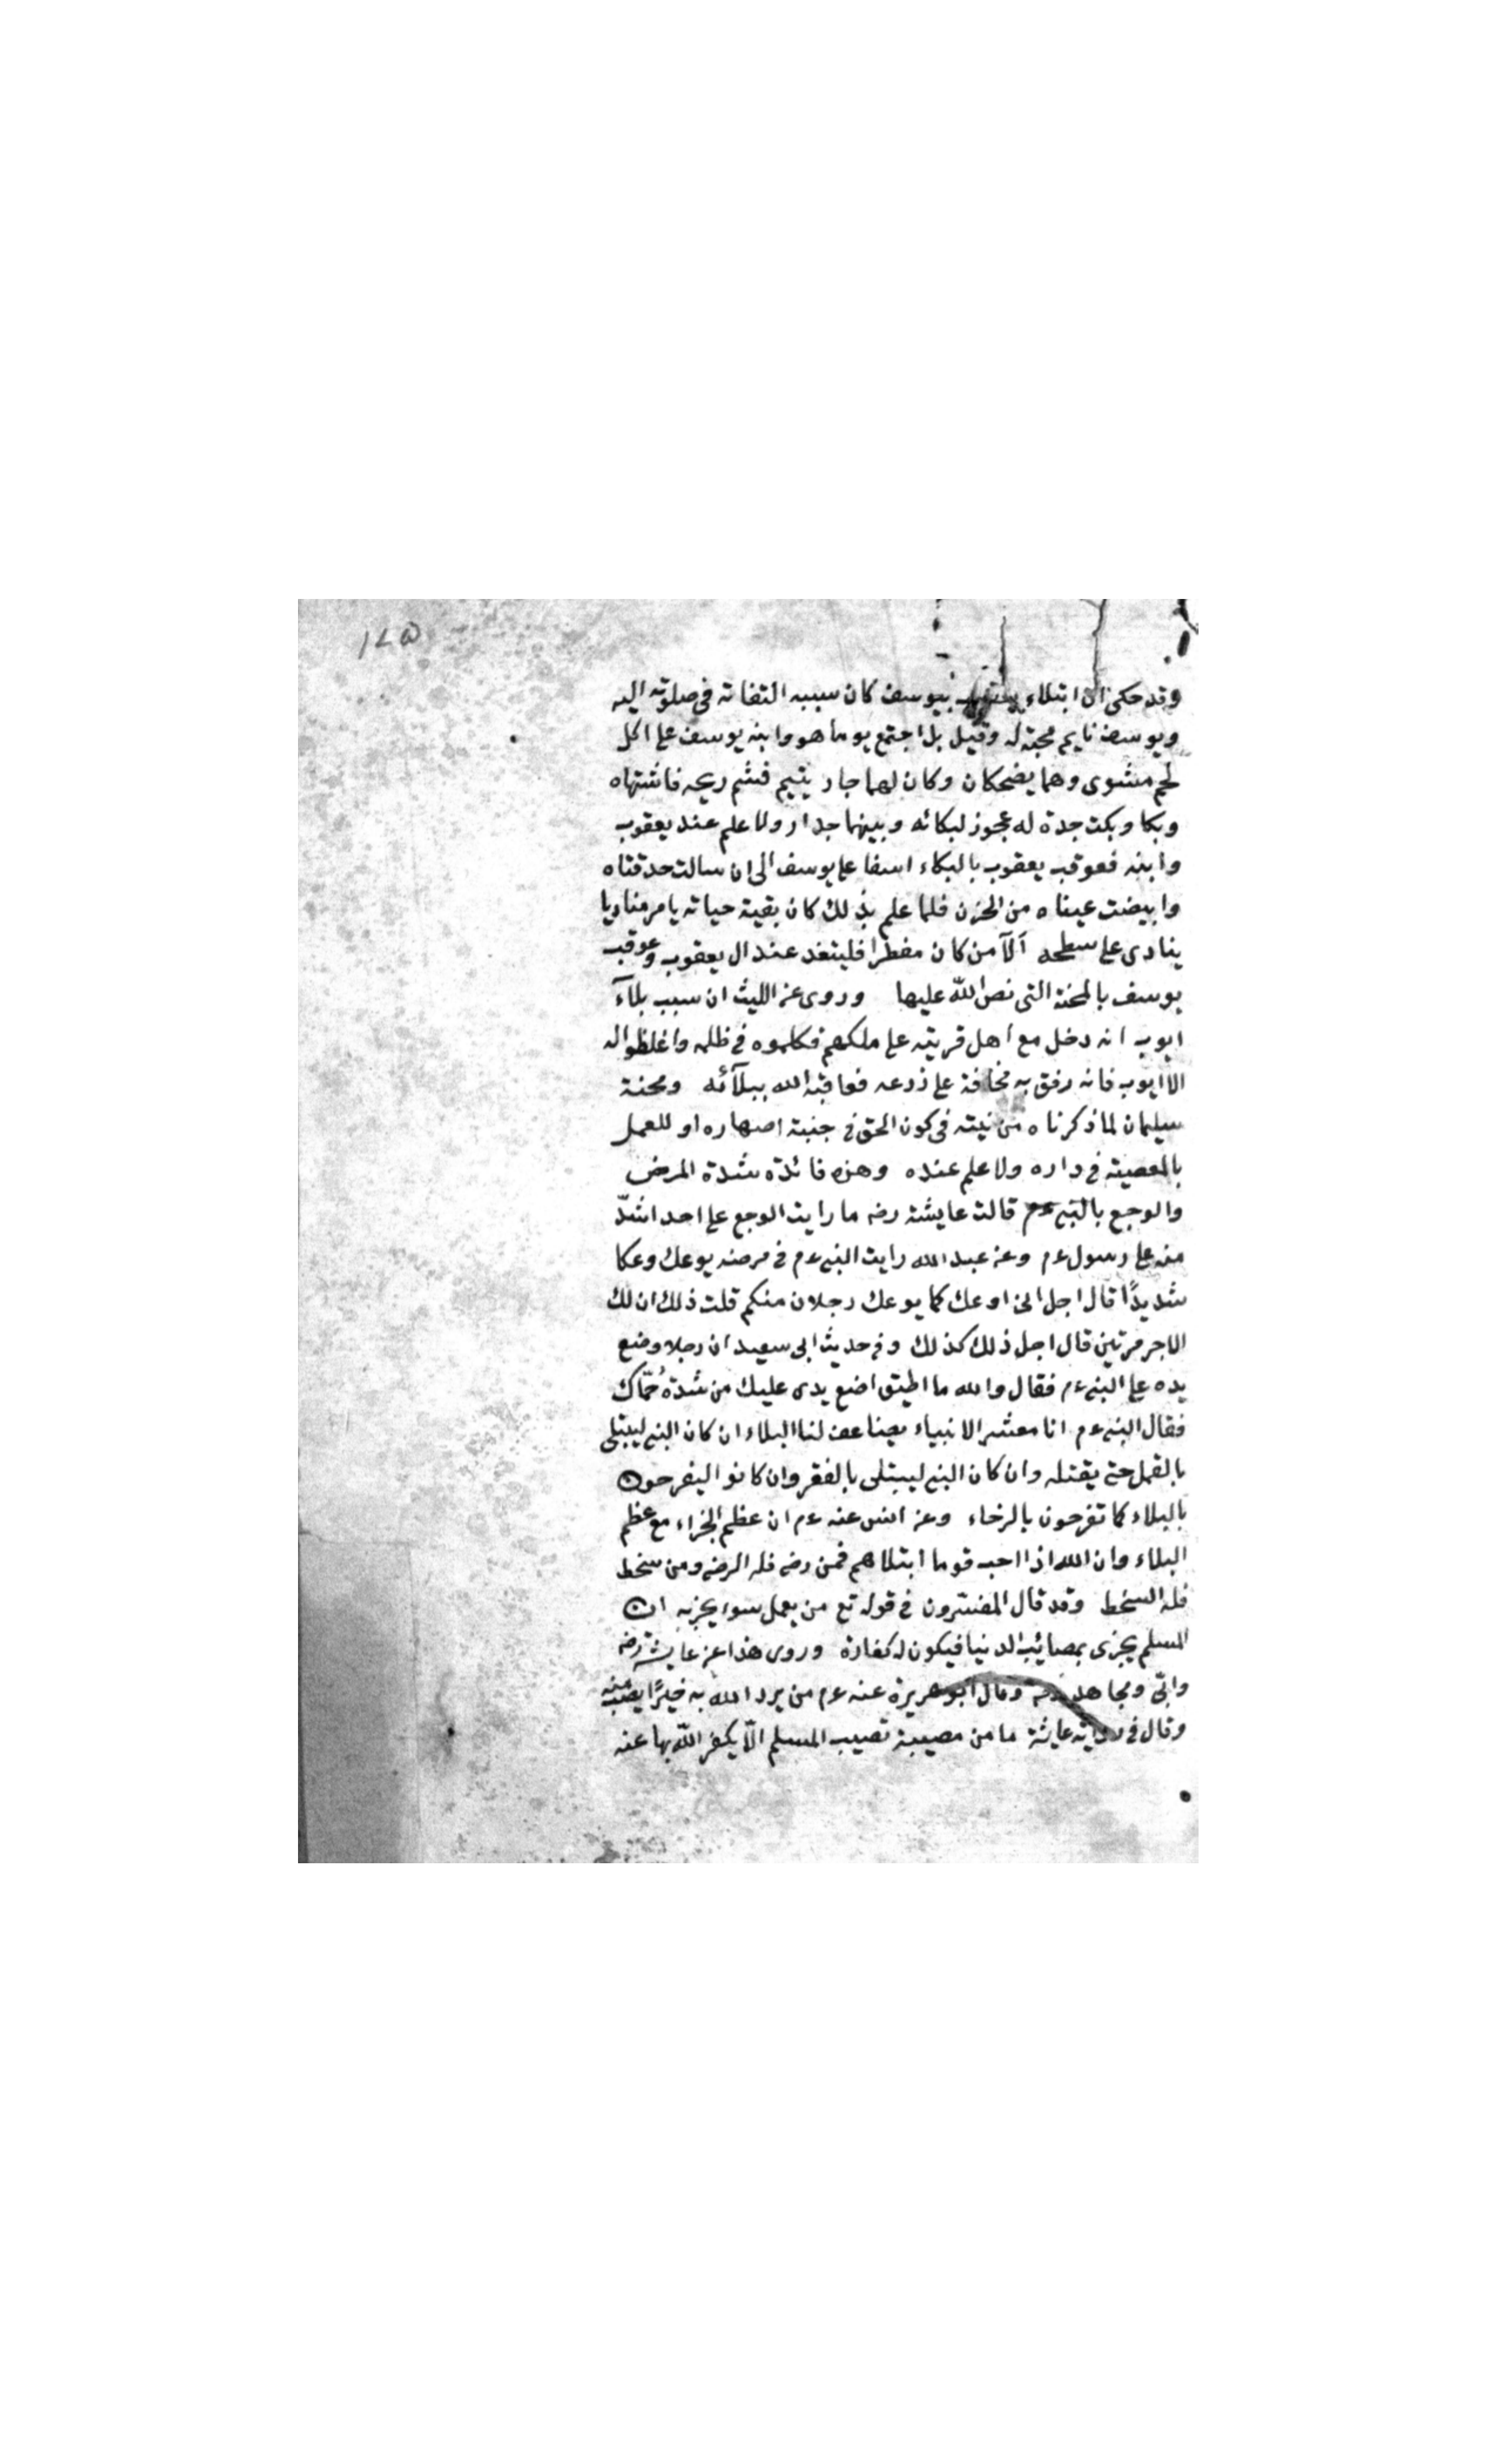 وقد حكى ان ابتلاء يعقوب بيوسف كان سببه التفاته فى صلوته اليه
ويوسف نايم محبة له وقيل بل اجتمع يوما هو وابنه يوسف على اكل
لحم مشوى وهما يضحكان وكان لهما جار يتيم فشم ريحه فاشتهاه
وبكا وبكت جدة له عجوز لبكائه وبينهما جدار ولا علم عند يعقوب
وابنه فعوقب يعقوب بالبكاء اسفا على يوسف الى ان سالت حدقتاه
وابيضت عيناه من الحزن فلما علم بذلك كان بقية حياته يامر مناديا
ينادى على سطحه ألا من كان مفطرا فليتغد عند ال يعقوب وعوقب
يوسف بالمحنة التى نص الله عليها وروى عن الليث ان سبب بلآء
ايوب انه دخل مع اهل قريته على ملكهم فكلموه فى ظلمه واغلظوا له
الا ايوب فانه رفق به مخافة على زرعه فعاقبه الله ببلآئه ومحنة
سليمان لما ذكرناه من نيته فى كون الحق فى جنبة اصهاره او للعمل
بالمعصية فى داره ولا علم عنده وهذه فائدة شدة المرض
والوجع بالنبى عم قالت عايشة رضه ما رايت الوجع على احد اشدّ
منه على رسول عم وعن عبد الله رايت النبى عم فى مرضه يوعك وعكا
شديدًا قال اجل انى اوعك كما يوعك رجلان منكم قلت ذلك ان لك
الاجر مرتين قال اجل ذلك كذلك وفى حديث ابى سعيد ان رجلا وضع
يده على النبى عم فقال والله ما اطيق اضع يدى عليك من شدة حُمّاك
فقال النبى عم انا معشر الانبياء يضاعف لنا البلاء ان كان النبى ليبتلى
بالقمل حتى يقتله وان كان النبى ليبتلى بالفقر وان كانوا ليفرحون
بالبلاء كما تفرحون بالرخاء وعن انس عنه عم ان عظم الجزاء مع عظم
البلاء وان الله اذا احب قوما ابتلاهم فمن رضى فله الرضى ومن سخط
فله السخط وقد قال المفسّرون فى قوله تع من يعمل سوء يجز به ان
المسلم يجزى بمصائب الدنيا فيكون له كفارة وروى هذا عن عايشة رضه
وابىّ ومجاهد وقال ابو هريرة عنه عم من يرد الله به خيرًا يصب منه
وقال فى رواية عايشة ما من مصيبة تصيب المسلم الّا يكفر الله بها عنه